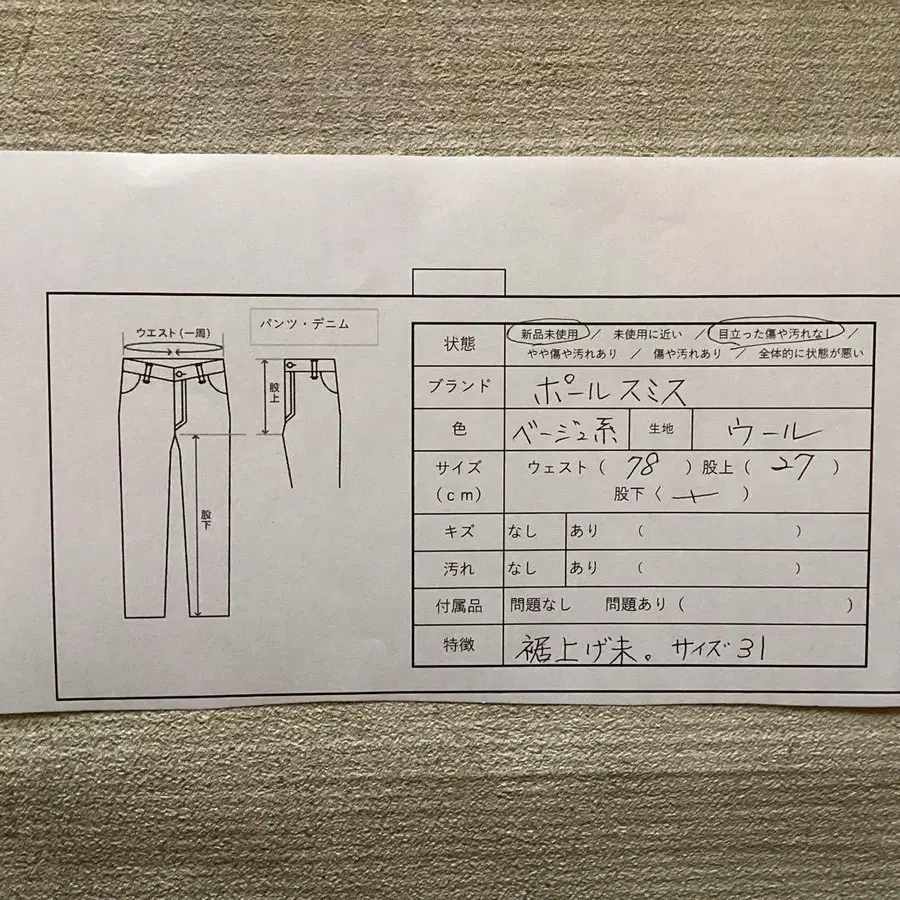 ウエスト(一周)
パンツ・デニム
股上
股下
状態 新品未使用 / 未使用に近い / 目立った傷や汚れなし /
やや傷や汚れあり / 傷や汚れあり / 全体的に状態が悪い
ブランド ポールスミス
色 ベージュ系 生地 ウール
サイズ(cm) ウェスト( 78 )股上( 27 )
股下( )
キズ なし あり ( )
汚れ なし あり ( )
付属品 問題なし 問題あり( )
特徴 裾上げ未。サイズ31